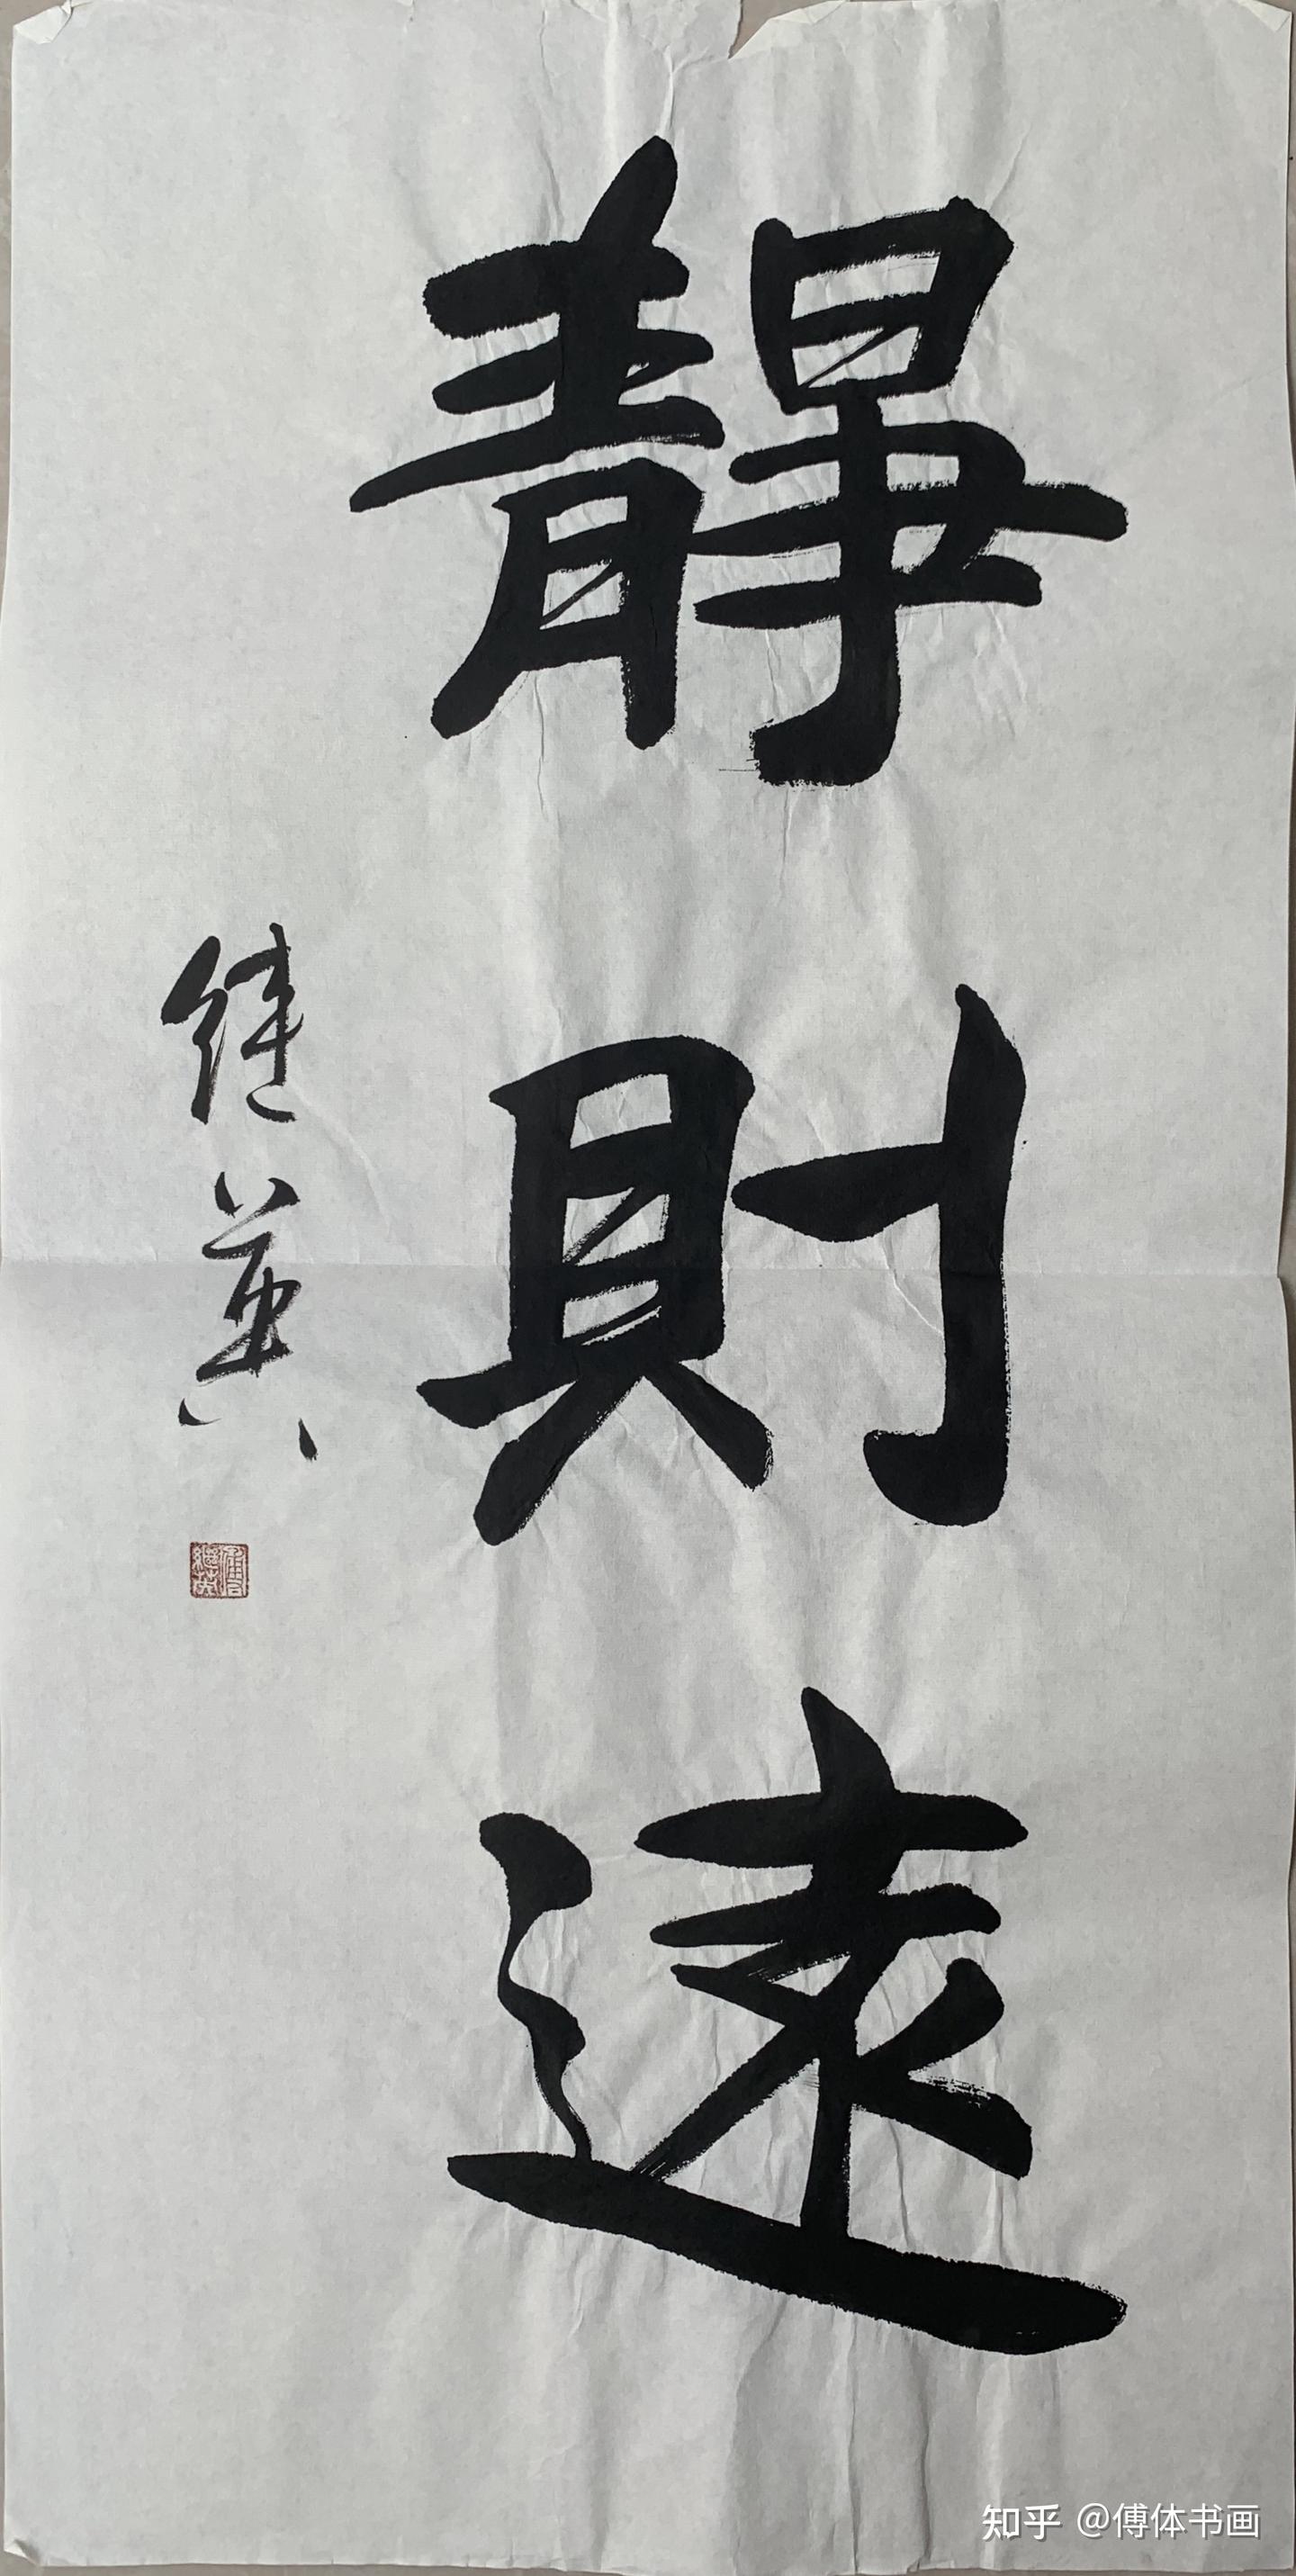 靜則遠
继英
知乎 @傅体书画